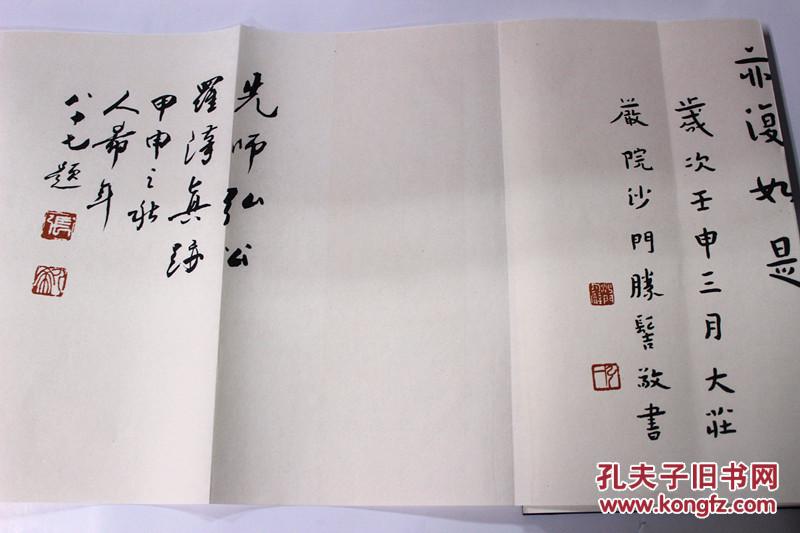 亦復如是
歲次壬申三月大莊
嚴院沙門勝髻敬書
先師弘公
羅漪真跡
甲申之秋
人希年
八十七題
孔夫子旧书网
www.kongfz.com